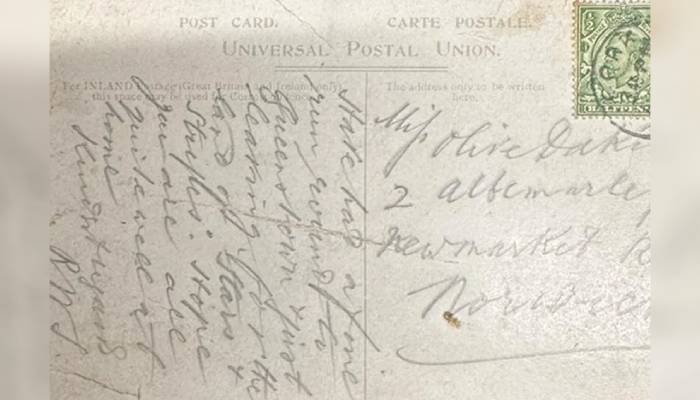 POST CARD.
CARTE POSTALE.
UNIVERSAL POSTAL UNION.
For INLAND Postage (Great Britain and Ireland only)
this space may be used for Correspondence.
The address only to be written
here.
HALFPENNY
Have had a fine
run around to
Queenstown. Just
leaving for the
land of Stars &
Stripes. hope
you are all
quite well at
home.
Kind regards
R.W.S.
Miss Olive Daki
2 Albemarle
Newmarket R
Norwich